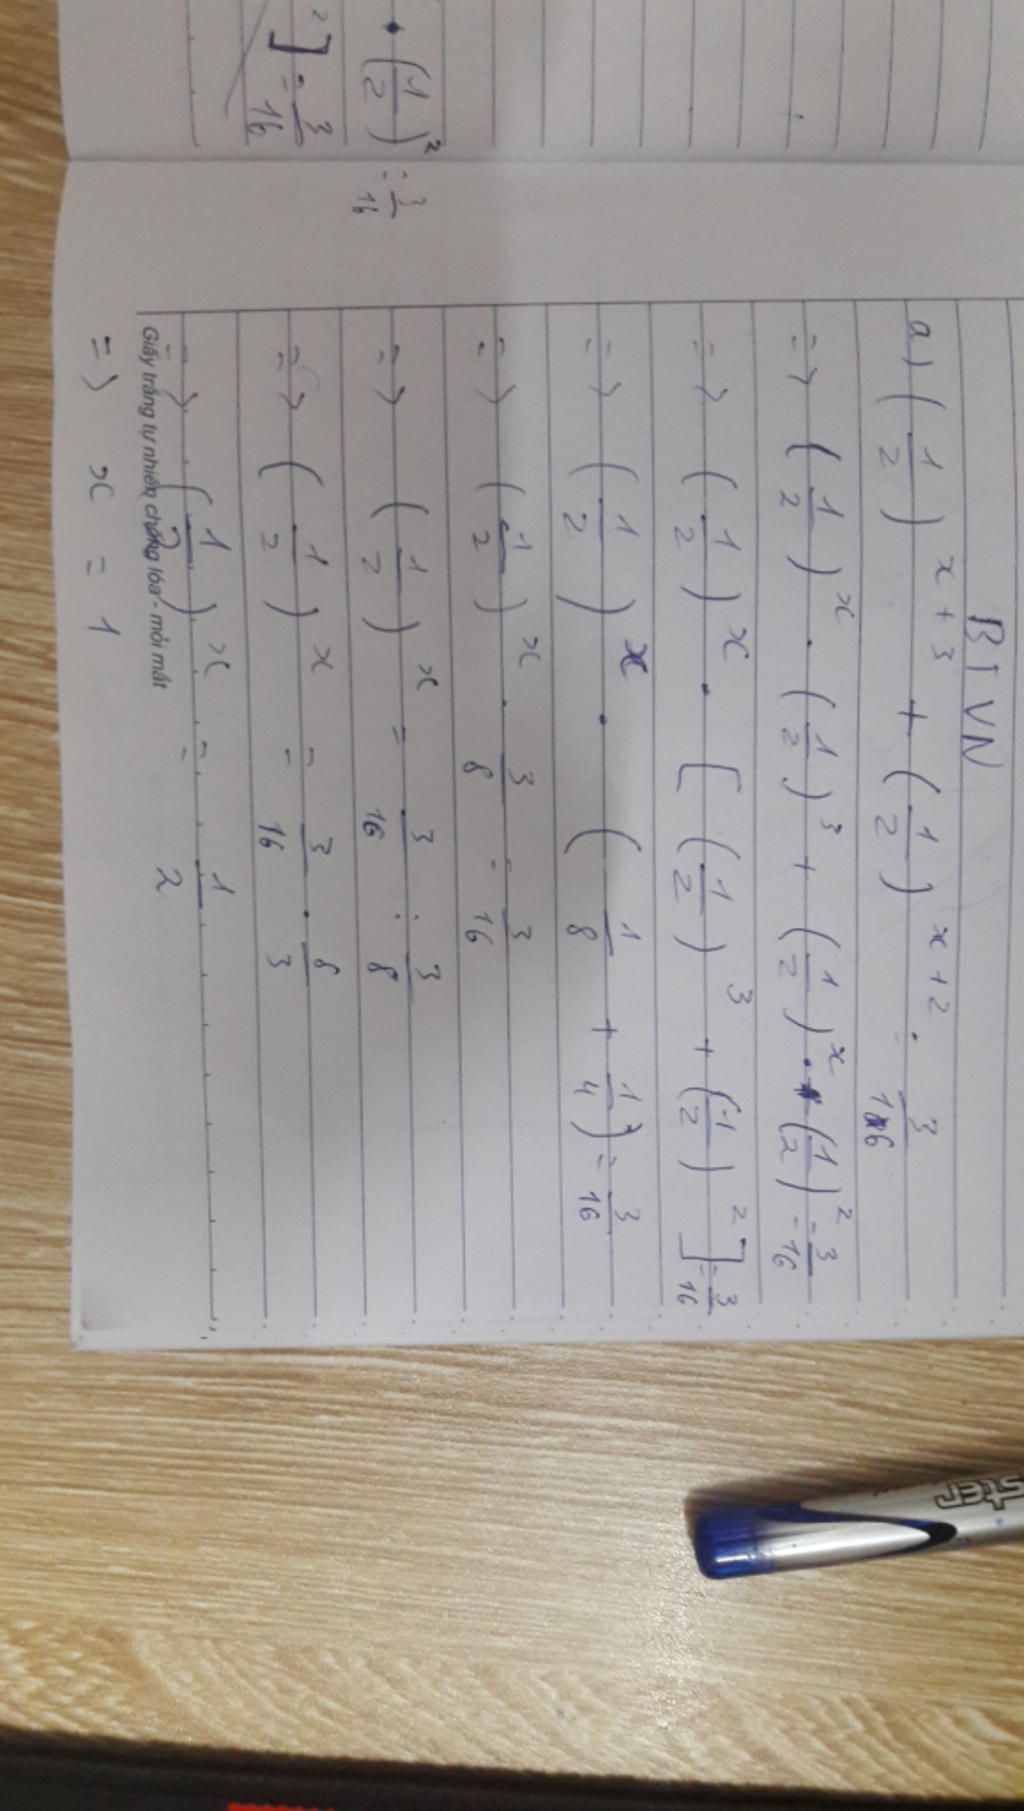 BTVN
a) (1/2)^x+3 + (1/2)^x+2 = 3/16
=> (1/2)^x . (1/2)^3 + (1/2)^x . (1/2)^2 = 3/16
=> (1/2)^x . [(1/2)^3 + (1/2)^2] = 3/16
=> (1/2)^x . (1/8 + 1/4) = 3/16
=> (1/2)^x . 3/8 = 3/16
=> (1/2)^x = 3/16 : 3/8
=> (1/2)^x = 3/16 . 8/3
=> (1/2)^x = 1/2
Giấy trắng tự nhiên chống lóa - mỏi mắt
=> x = 1
. (1/2)^2 = 3/16
^2] = 3/16
ster